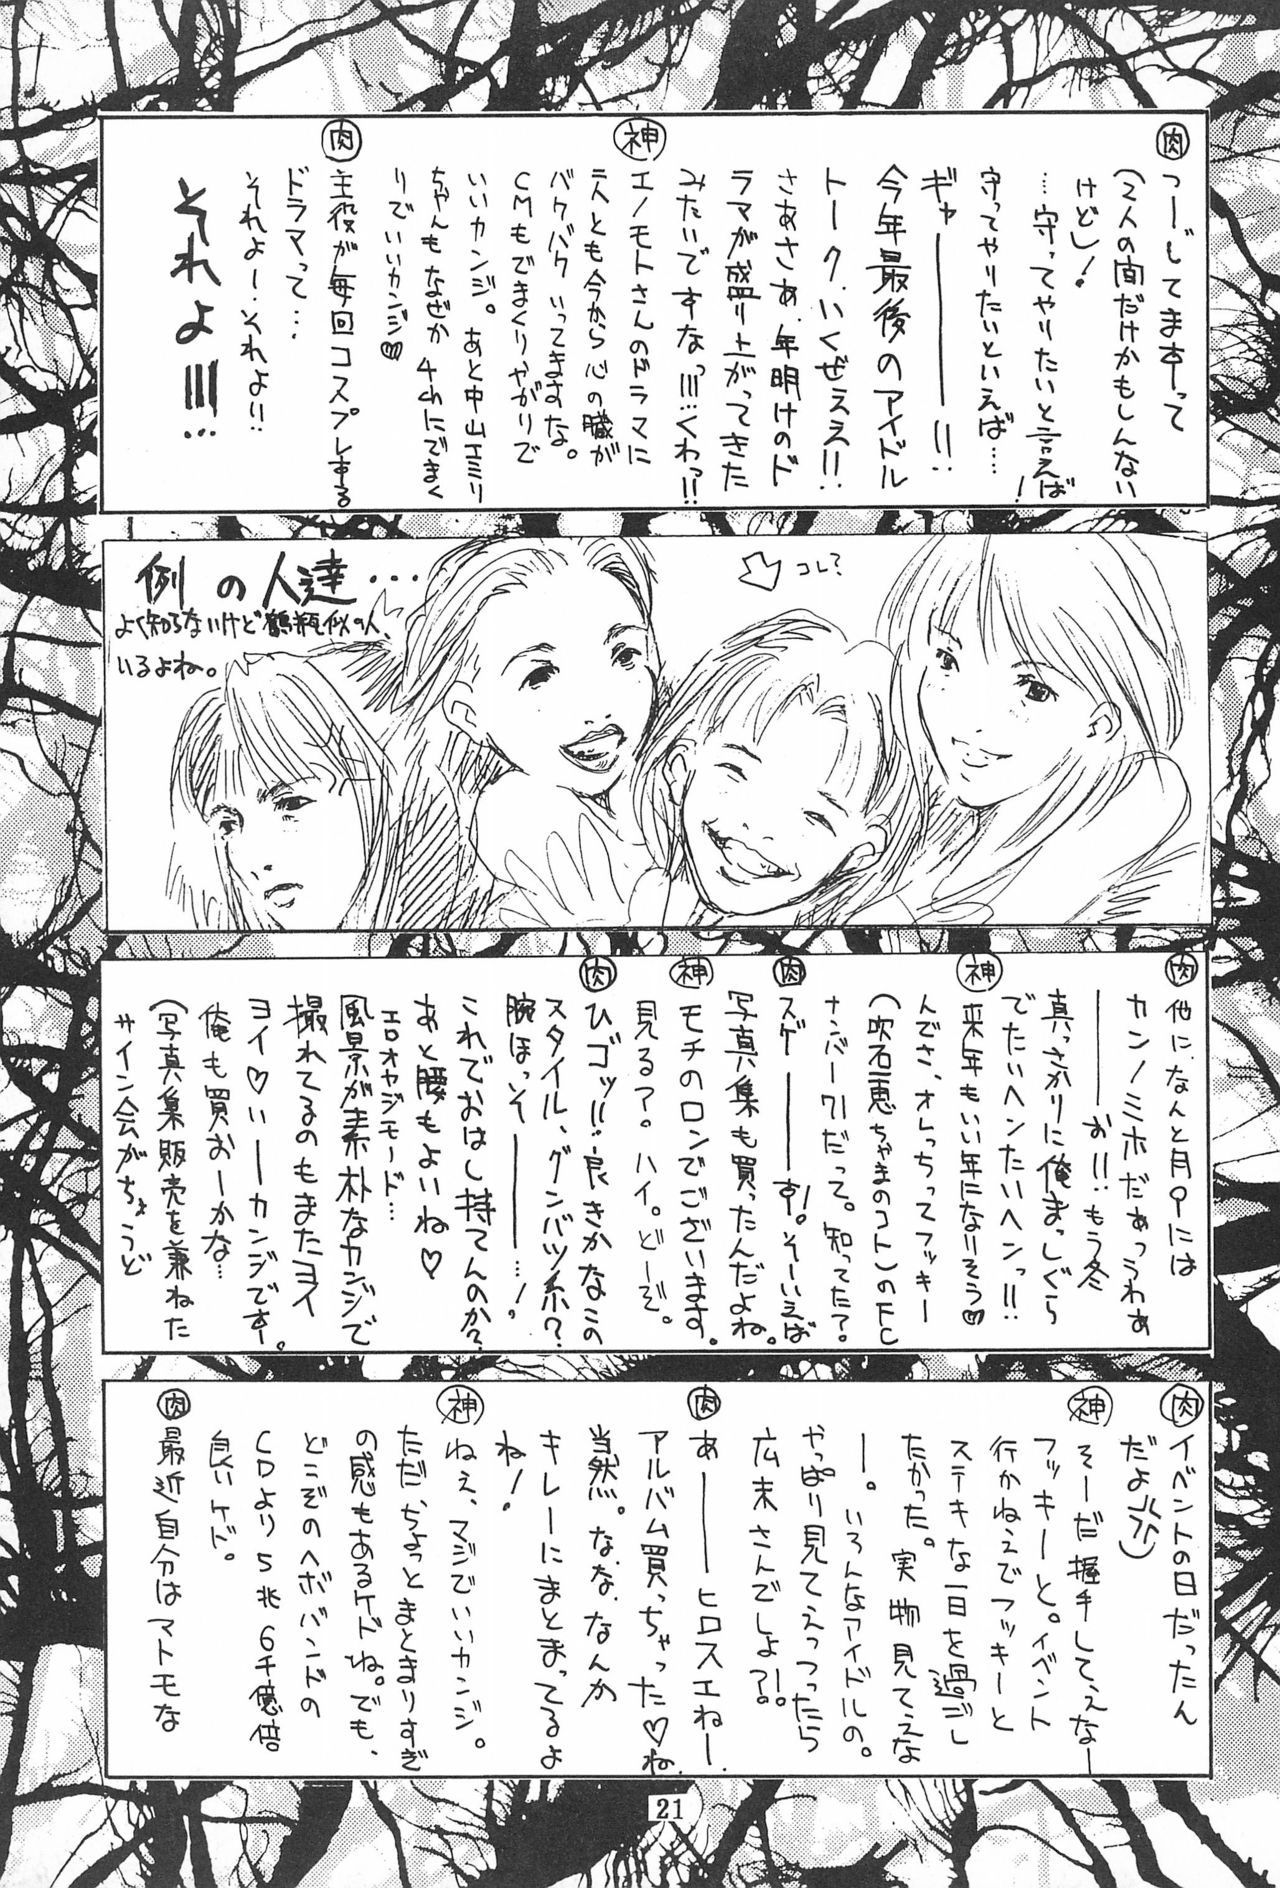 肉
つーじてますって
(2人の間だけかもしんない
けどし!
…守ってやりたいと言えば
守ってやりたいといえば…!
ギャー!!
今年最後のアイドル
トーク、いくぜええ!!
さあさあ、年明けのド
ラマが盛り上がってきた
みたいですなっ!!!くわっ!!
神
エノモトさんのドラマに
二人とも今から心の臓が
バクバクいってますな。
CMもでまくりやがりで
いいカンジ。あと中山エミリ
ちゃんもなぜか4chにでまく
りでいいカンジ♡
肉
主役が毎回コスプレする
ドラマって…
それよー、それよ!!
それよ!!!…
例の人達…
よく知らないけど鶴瓶似の人、
いるよね。
コレ?
肉
他に、なんと月9には
カンノミホだぁっうわぁ
ーーお!!もう冬
真っさかりに俺まっしぐら
でたいヘンたいヘンっ!!
神
来年もいい年になりそう♡
んでさ、オレっちってフッキー
(吹石恵ちゃまのコト)のFC
ナンバー71だって。知ってた?
肉
スゲーーす!。そーいえば
写真集も買ったんだよね。
神
モチのロンでございます。
見る?。ハイ。どーぞ。
肉
ひゴッ!!良きかなこの
スタイル、グンバツ系?
腕ほっそーー…!。
これでおはし持てんのか?
あと腰もよいね♡
エロオヤジモード…
風景が素朴なカンジで
撮れてるのもまたヨイ
ヨイ♡いーーカンジです。
俺も買おーかな…
(写真集販売を兼ねた
サイン会がちょうど
肉
イベントの日だったん
だよ)
神
そーだ握手してぇなー
フッキーと。イベント
行かねえでフッキーと
ステキな一日を過ごし
たかった。実物見てぇな
ー。いろんなアイドルの。
やっぱり見てえっつったら
広末さんでしょ?!。
肉
あーーヒロスエねー、
アルバム買っちゃった♡ね
当然。な、な、なんか
キレーにまとまってるよ
ね!
神
ねぇ、マジでいいカンジ。
ただ、ちょっとまとまりすぎ
の感もあるケドね。でも、
どこぞのヘボバンドの
CDより5兆6千億倍
良いケド。
肉
最近自分はマトモな
21